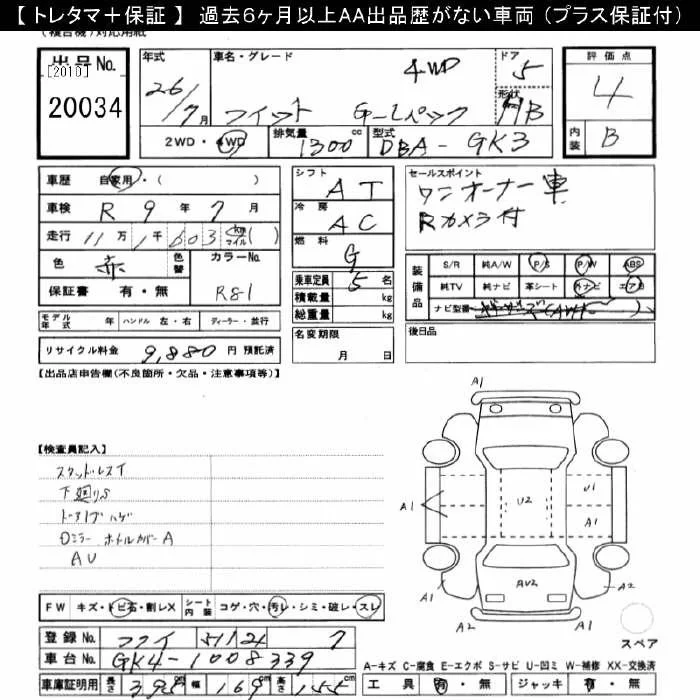 【 トレタマ＋保証 】 過去６ヶ月以上ＡＡ出品歴がない車両 （プラス保証付）
(複合機)対応用紙
出品No.
[2010]
20034
年式 26/7月
車名・グレード 4WD
フィット G-Lパック
ドア 5
形状 HB
評価点 4
内装 B
2WD・4WD 排気量 1300 cc 型式 DBA-GK3
車歴 自家用・( )
車検 R 9 年 7 月
走行 11万 1千 603 km マイル ( )
色 赤 色替 カラーNo. R81
保証書 有・無
モデル年式 年 ハンドル 左・右 ディーラー・並行
リサイクル料金 9,880 円 預託済
シフト AT
冷房 AC
燃料 G
乗車定員 5 名
積載量 kg
総重量 kg
名変期限 月 日
セールスポイント
ワンオーナー車
Rカメラ付
装備品 S/R 純A/W P/S P/W ABS
純TV 純ナビ 革シート 外ナビ エアB
ナビ型番
後日品
【出品店申告欄(不良箇所・欠品・注意事項等)】
【検査員記入】
スタッドレスT
下廻りS
ドアノブハゲ
Dミラー ホイルカバーA
AU
A1
U2
U1
A1
A1
A1
A2
AU2
A1
A2
スペア
FW キズ・トビ石・割レX シート内装 コゲ・穴・汚レ・シミ・破レ・スレ
登録No. 511 7
車台No. GK4-1008339
車庫証明用 長さ 395 幅 169 高さ 155 cm
A-キズ C-腐食 E-エクボ S-サビ U-凹ミ W-補修 XX-交換済
工具 有・無 ジャッキ 有・無